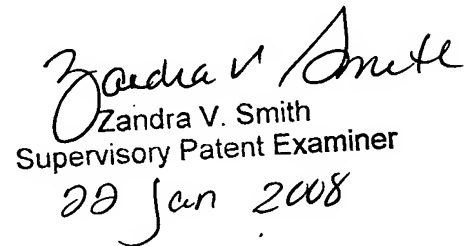 Zandra V Smith
Zandra V. Smith
Supervisory Patent Examiner
22 Jan 2008